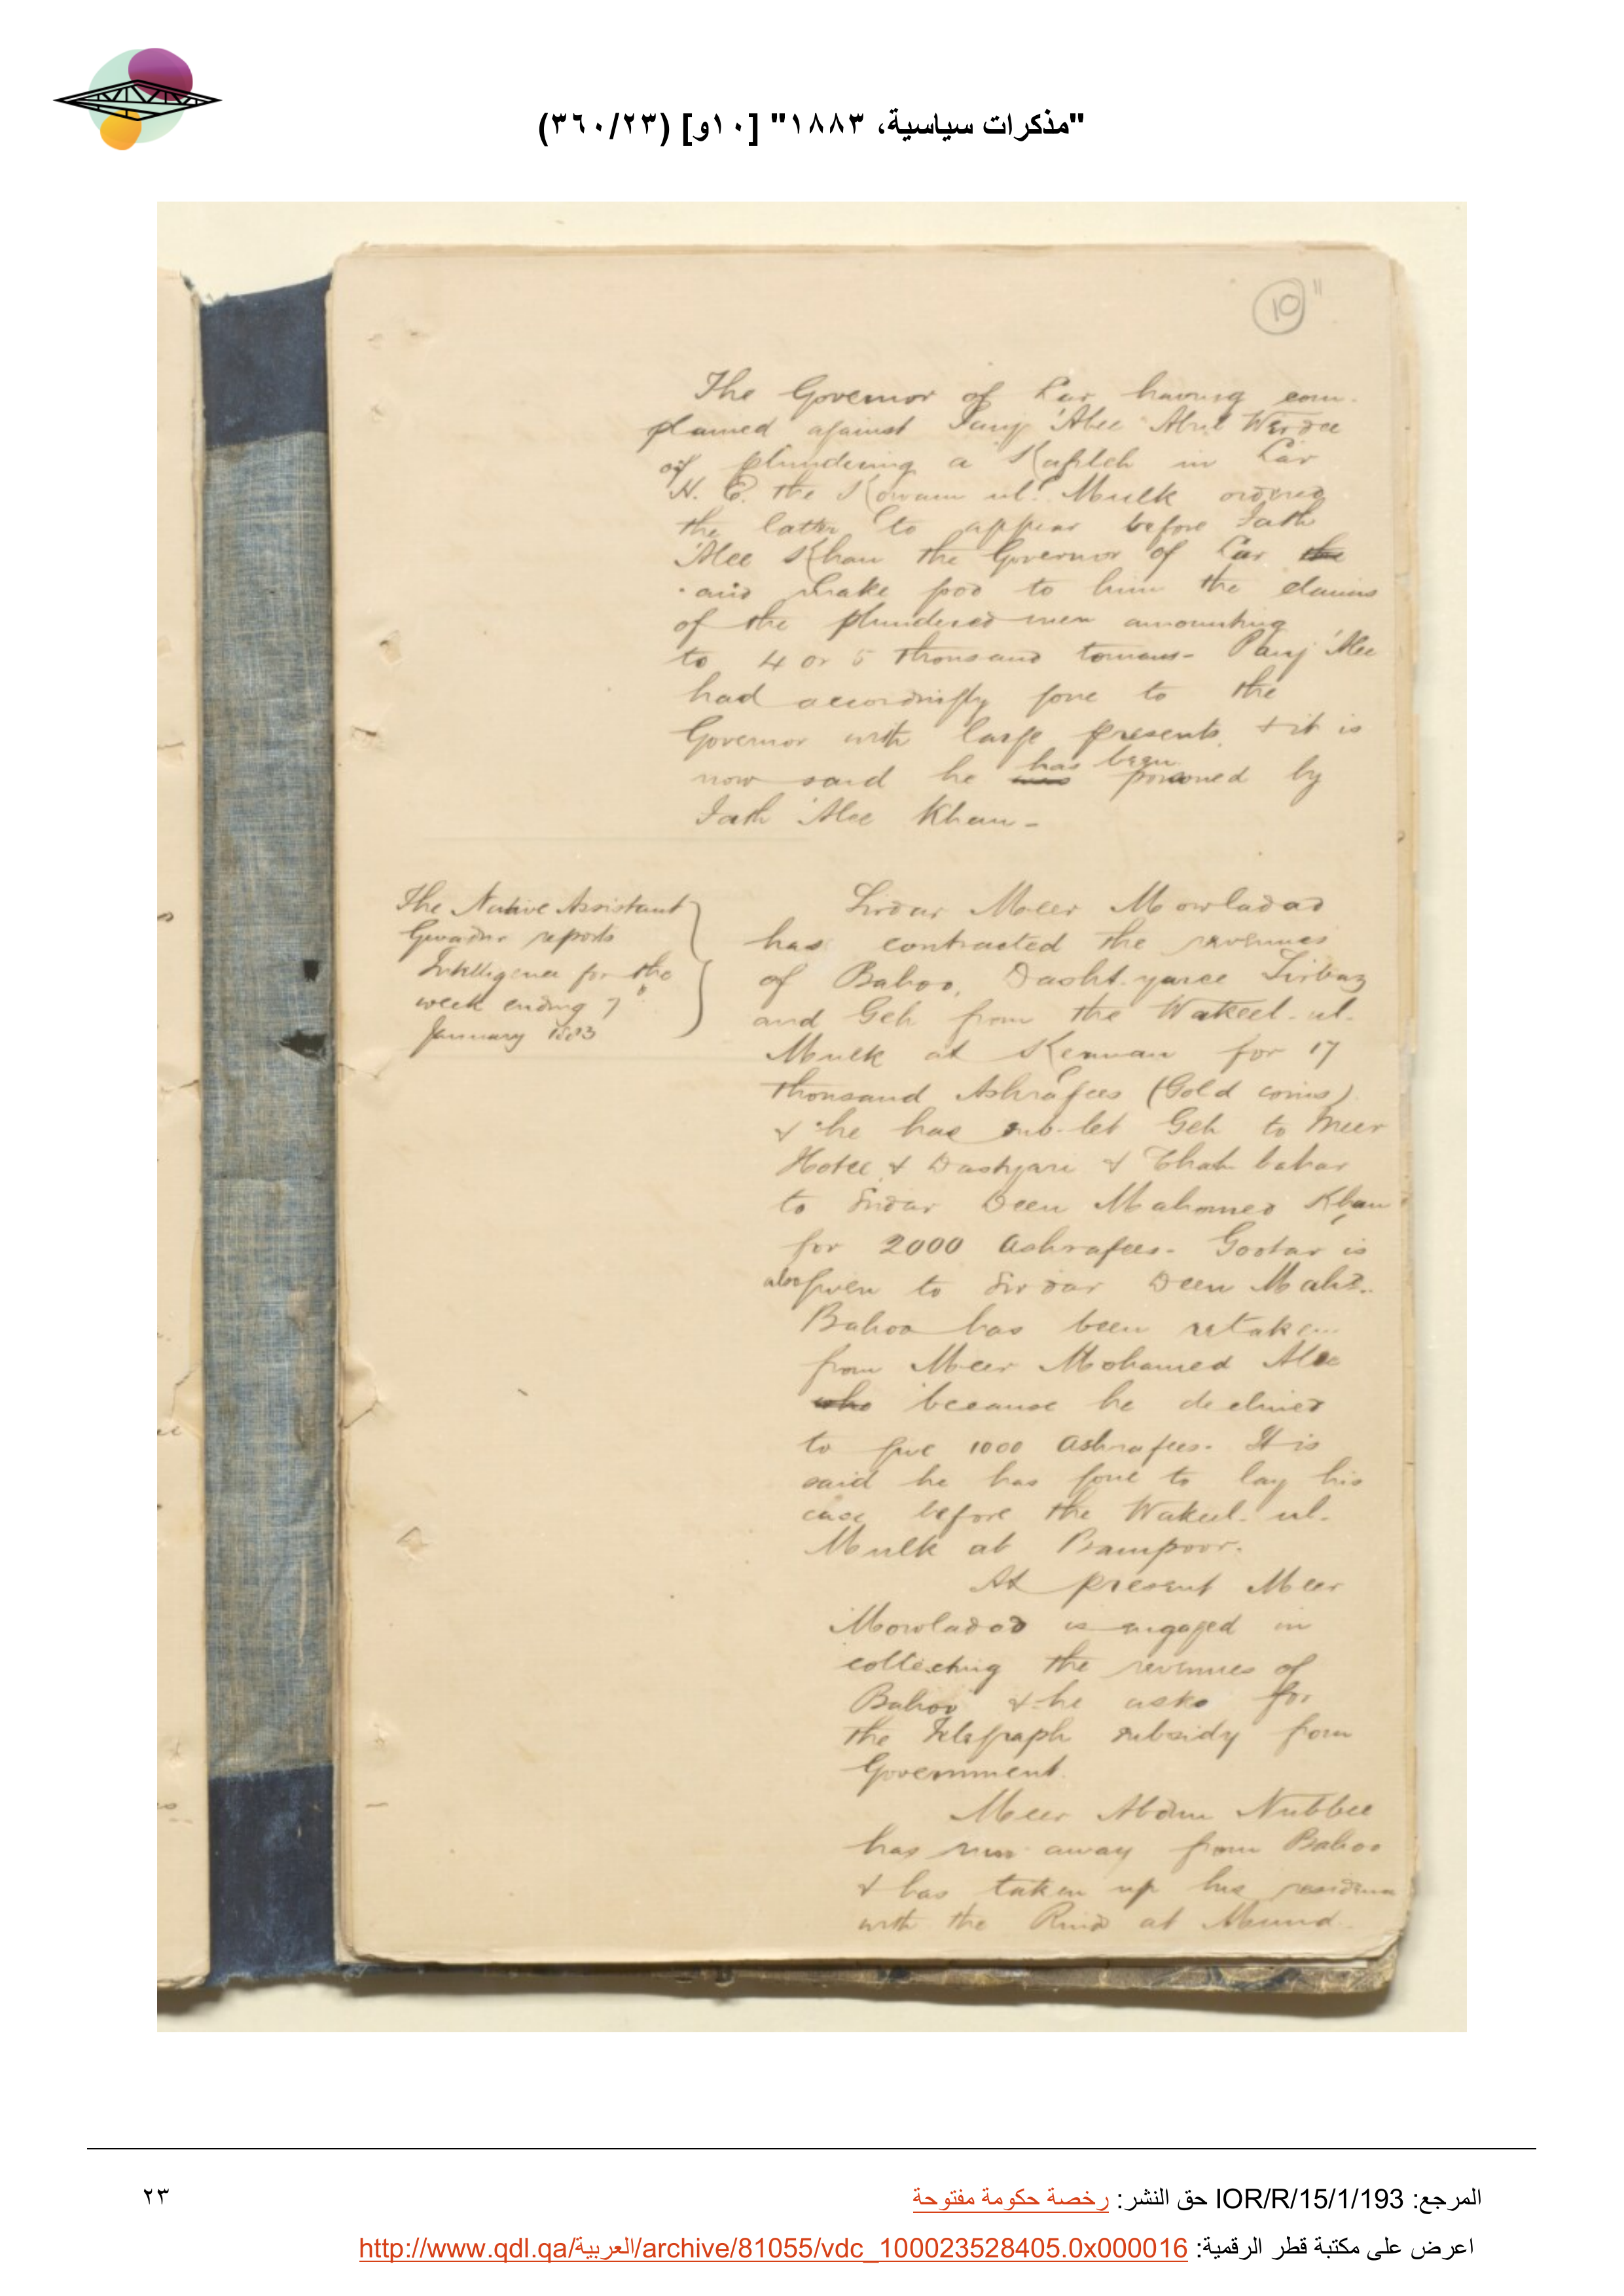 "مذكرات سياسية، ١٨٨٣" [١٠و] (٣٦٠/٢٣)
10
The Governor of Lar having com-
plained against Panj 'Alee Abul Werdee
of plundering a Kafileh in Lar
H. E. the Kowam ul Mulk ordered
the latter to appear before Fath
'Alee Khan the Governor of Lar the
and make good to him the claims
of the plundered men amounting
to 4 or 5 thousand tomans - Panj 'Alee
had accordingly gone to the
Governor with large presents & it is
now said he was has been poisoned by
Fath 'Alee Khan -
The Native Assistant
Gwadur reports
Intelligence for the
week ending 7th
January 1883
Sirdar Meer Mowladad
has contracted the revenues
of Bahoo, Dasht-yaree Sirbaz
and Geh from the Wakeel-ul-
Mulk at Kerman for 17
thousand Ashrafees (Gold coins)
& he has sub-let Geh to Meer
Hotee & Dashyari & Chah bahar
to Sirdar Deen Mahomed Khan
for 2000 Ashrafees - is
also given to Sirdar Deen Mahd.
Bahoo has been retaken
from Meer Mohamed Alee
who because he declined
to give 1000 Ashrafees. It is
said he has gone to lay his
case before the Wakeel-ul-
Mulk at Bampoor.
At present Meer
Mowladad is engaged in
collecting the revenues of
Bahoo & he asks for
the Telegraph subsidy from
Government.
Meer Abdun Nubbee
has run away from Bahoo
& has taken up his residence
with the Rind at Mund.
المرجع: IOR/R/15/1/193 حق النشر: رخصة حكومة مفتوحة
٢٣
اعرض على مكتبة قطر الرقمية: http://www.qdl.qa/العربية/archive/81055/vdc_100023528405.0x000016